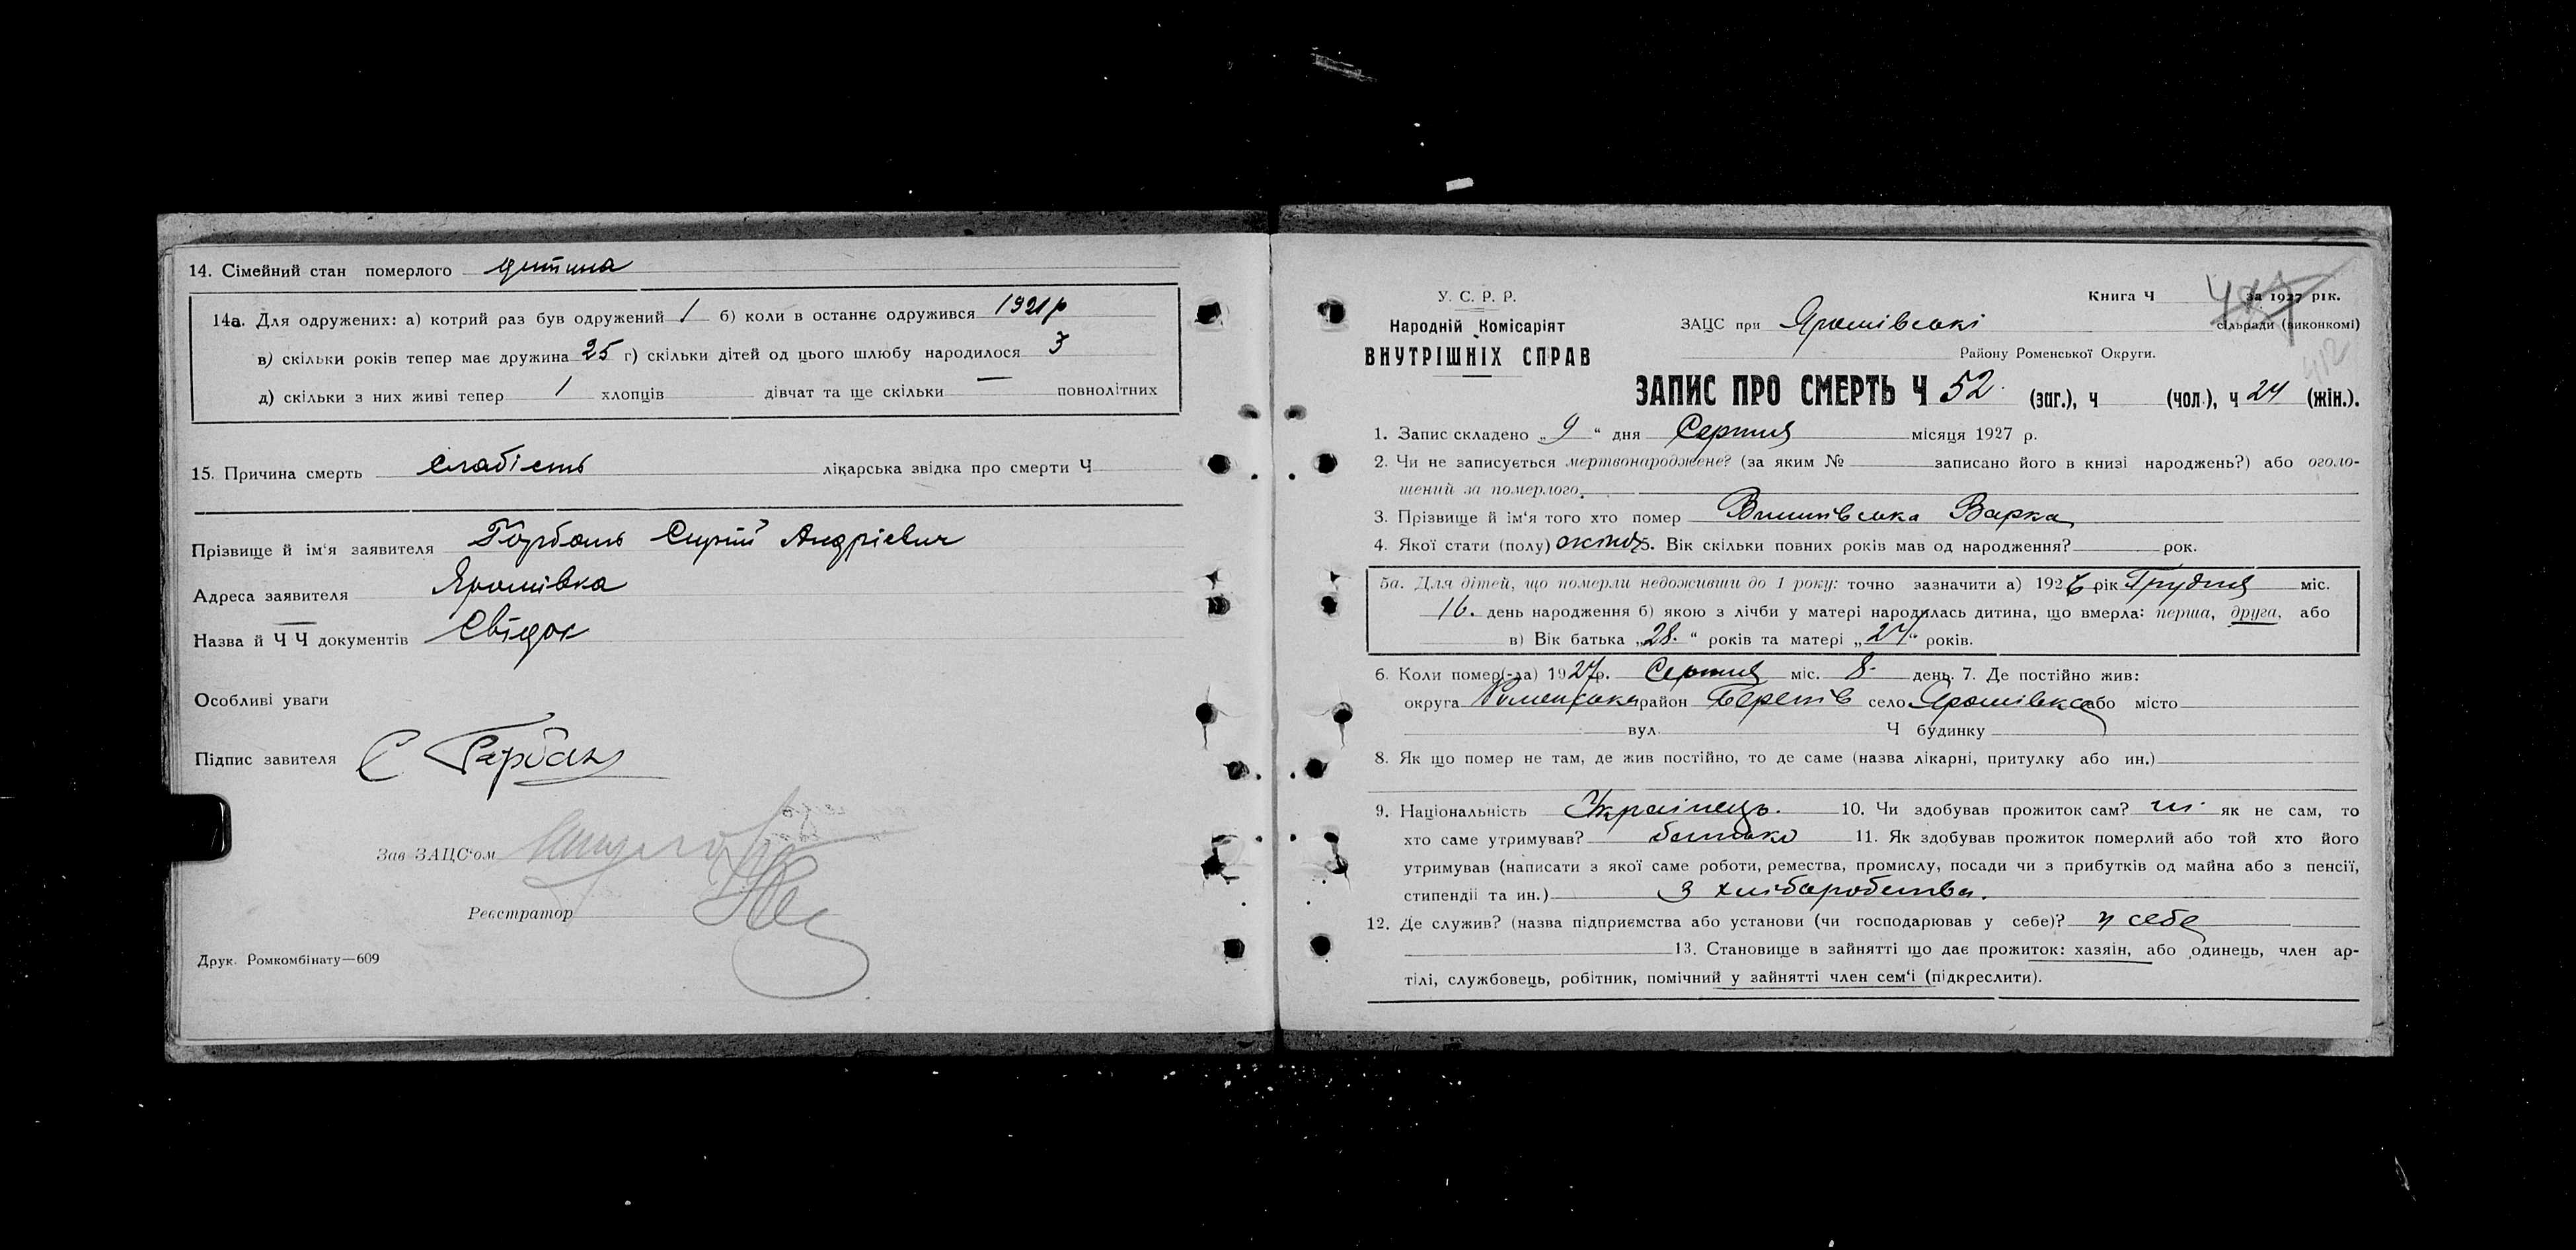 14. Сімейний стан померлого дитина
14а. Для одружених: а) котрий раз був одружений 1 б) коли в останнє одружився 1921р
в) скільки років тепер має дружина 25 г) скільки дітей од цього шлюбу народилося 3
д) скільки з них живі тепер 1 хлопців дівчат та ще скільки — повнолітних
15. Причина смерть слабість лікарська звідка про смерти Ч
Прізвище й ім'я заявителя Горбань Сергій Андрієвич
Адреса заявителя Ярошівка
Назва й Ч Ч документів Свідок
Особливі уваги
Підпис завителя С Горбань
Зав ЗАЦС'ом
Реєстратор
Друк. Ромкомбінату—609
У. С. Р. Р.
Народній Комісаріят
ВНУТРІШНІХ СПРАВ
Книга Ч за 1927 рік.
ЗАЦС при Ярошівські сільради (виконкомі)
412
Району Роменської Округи.
ЗАПИС ПРО СМЕРТЬ Ч 52. (заг.), ч (чол.), ч 24 (жін.).
1. Запис складено „9“ дня Серпня місяця 1927 р.
2. Чи не записується мертвонароджене? (за яким № записано його в книзі народжень?) або оголо-
шений за померлого
3. Прізвище й ім'я того хто помер Вишнівська Варка
4. Якої стати (полу) 5. Вік скільки повних років мав од народження? рок.
5а. Для дітей, що померли недоживши до 1 року: точно зазначити а) 1926 рік Грудня міс.
16. день народження б) якою з лічби у матері народилась дитина, що вмерла: перша, друга, або
в) Вік батька „28.“ років та матері „27“ років.
6. Коли помер(-ла) 1927р. Серпня міс. 8 день. 7. Де постійно жив:
округа Роменська район село Ярошівка або місто
вул. Ч будинку
8. Як що помер не там, де жив постійно, то де саме (назва лікарні, притулку або ин.)
9. Національність Українець. 10. Чи здобував прожиток сам? ні як не сам, то
хто саме утримував? батько 11. Як здобував прожиток померлий або той хто його
утримував (написати з якої саме роботи, ремества, промислу, посади чи з прибутків од майна або з пенсії,
стипендії та ин.) З хліборобства.
12. Де служив? (назва підприємства або установи (чи господарював у себе)? у себе
13. Становище в зайнятті що дає прожиток: хазяін, або одинець, член ар-
тілі, службовець, робітник, помічний у зайнятті член сем'і (підкреслити).